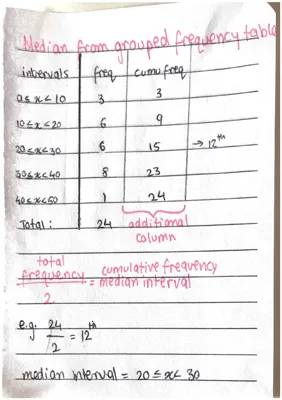 Median from grouped frequency table
intervals freq cumu freq
0≤x<10 3 3
10≤x<20 6 9
20≤x<30 6 15 → 12th
30≤x<40 8 23
40≤x<50 1 24
Total: 24 additional
column
total
frequency = cumulative frequency
2 median interval
e.g. 24/2 = 12th
median interval = 20≤x<30